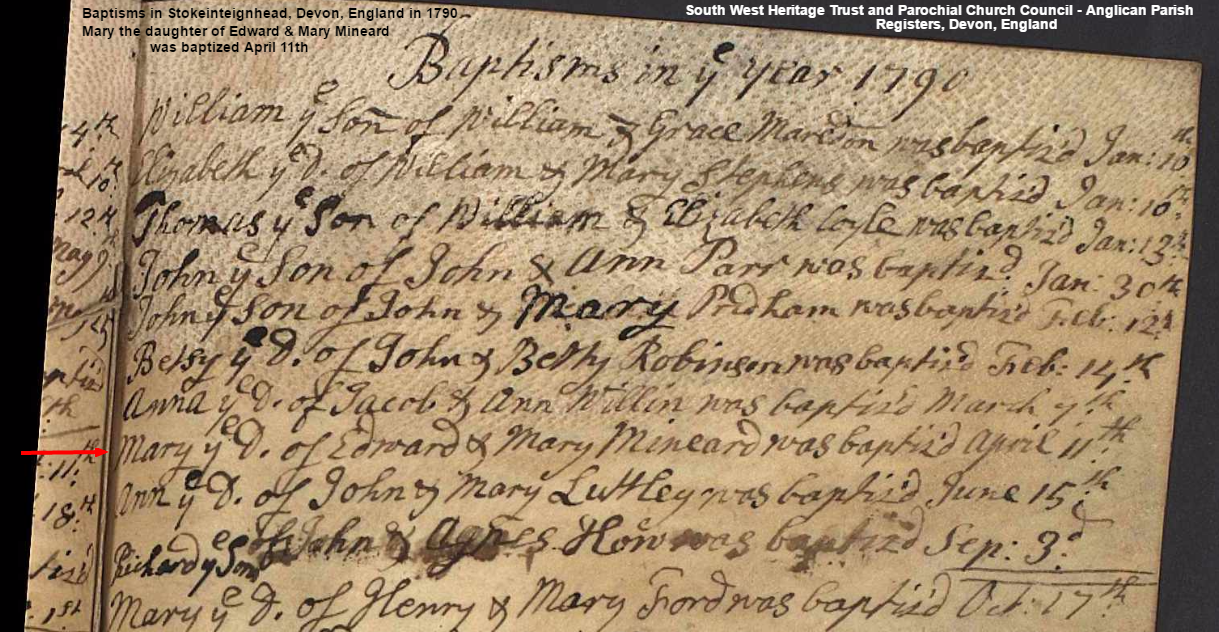 Baptisms in Stokeinteignhead, Devon, England in 1790
Mary the daughter of Edward & Mary Mineard
was baptized April 11th
South West Heritage Trust and Parochial Church Council - Anglican Parish
Registers, Devon, England
Baptisms in yᵉ year 1790
William yᵉ Son of William & Grace Maredon was baptiz'd Jan: 10th
Elizabeth yᵉ D. of William & Mary Stephens was baptiz'd Jan: 10th
Thomas yᵉ Son of William & Elizabeth was baptiz'd Jan: 13th
John yᵉ Son of John & Ann Parr was baptiz'd Jan: 30th
John yᵉ Son of John & Mary Pridham was baptiz'd Feb: 12th
Betsy yᵉ D. of John & Betty Robinson was baptiz'd Feb: 14th
Anna yᵉ D. of Jacob & Ann Willin was baptiz'd March 7th
Mary yᵉ D. of Edward & Mary Mineard was baptiz'd April 11th
Ann yᵉ D. of John & Mary Luttley was baptiz'd June 15th
Richard yᵉ Son of John & Agnes How was baptiz'd Sep: 3d
Mary yᵉ D. of Henry & Mary Ford was baptiz'd Oct: 17th
4th
10th
12th
May
11th
18th
1st